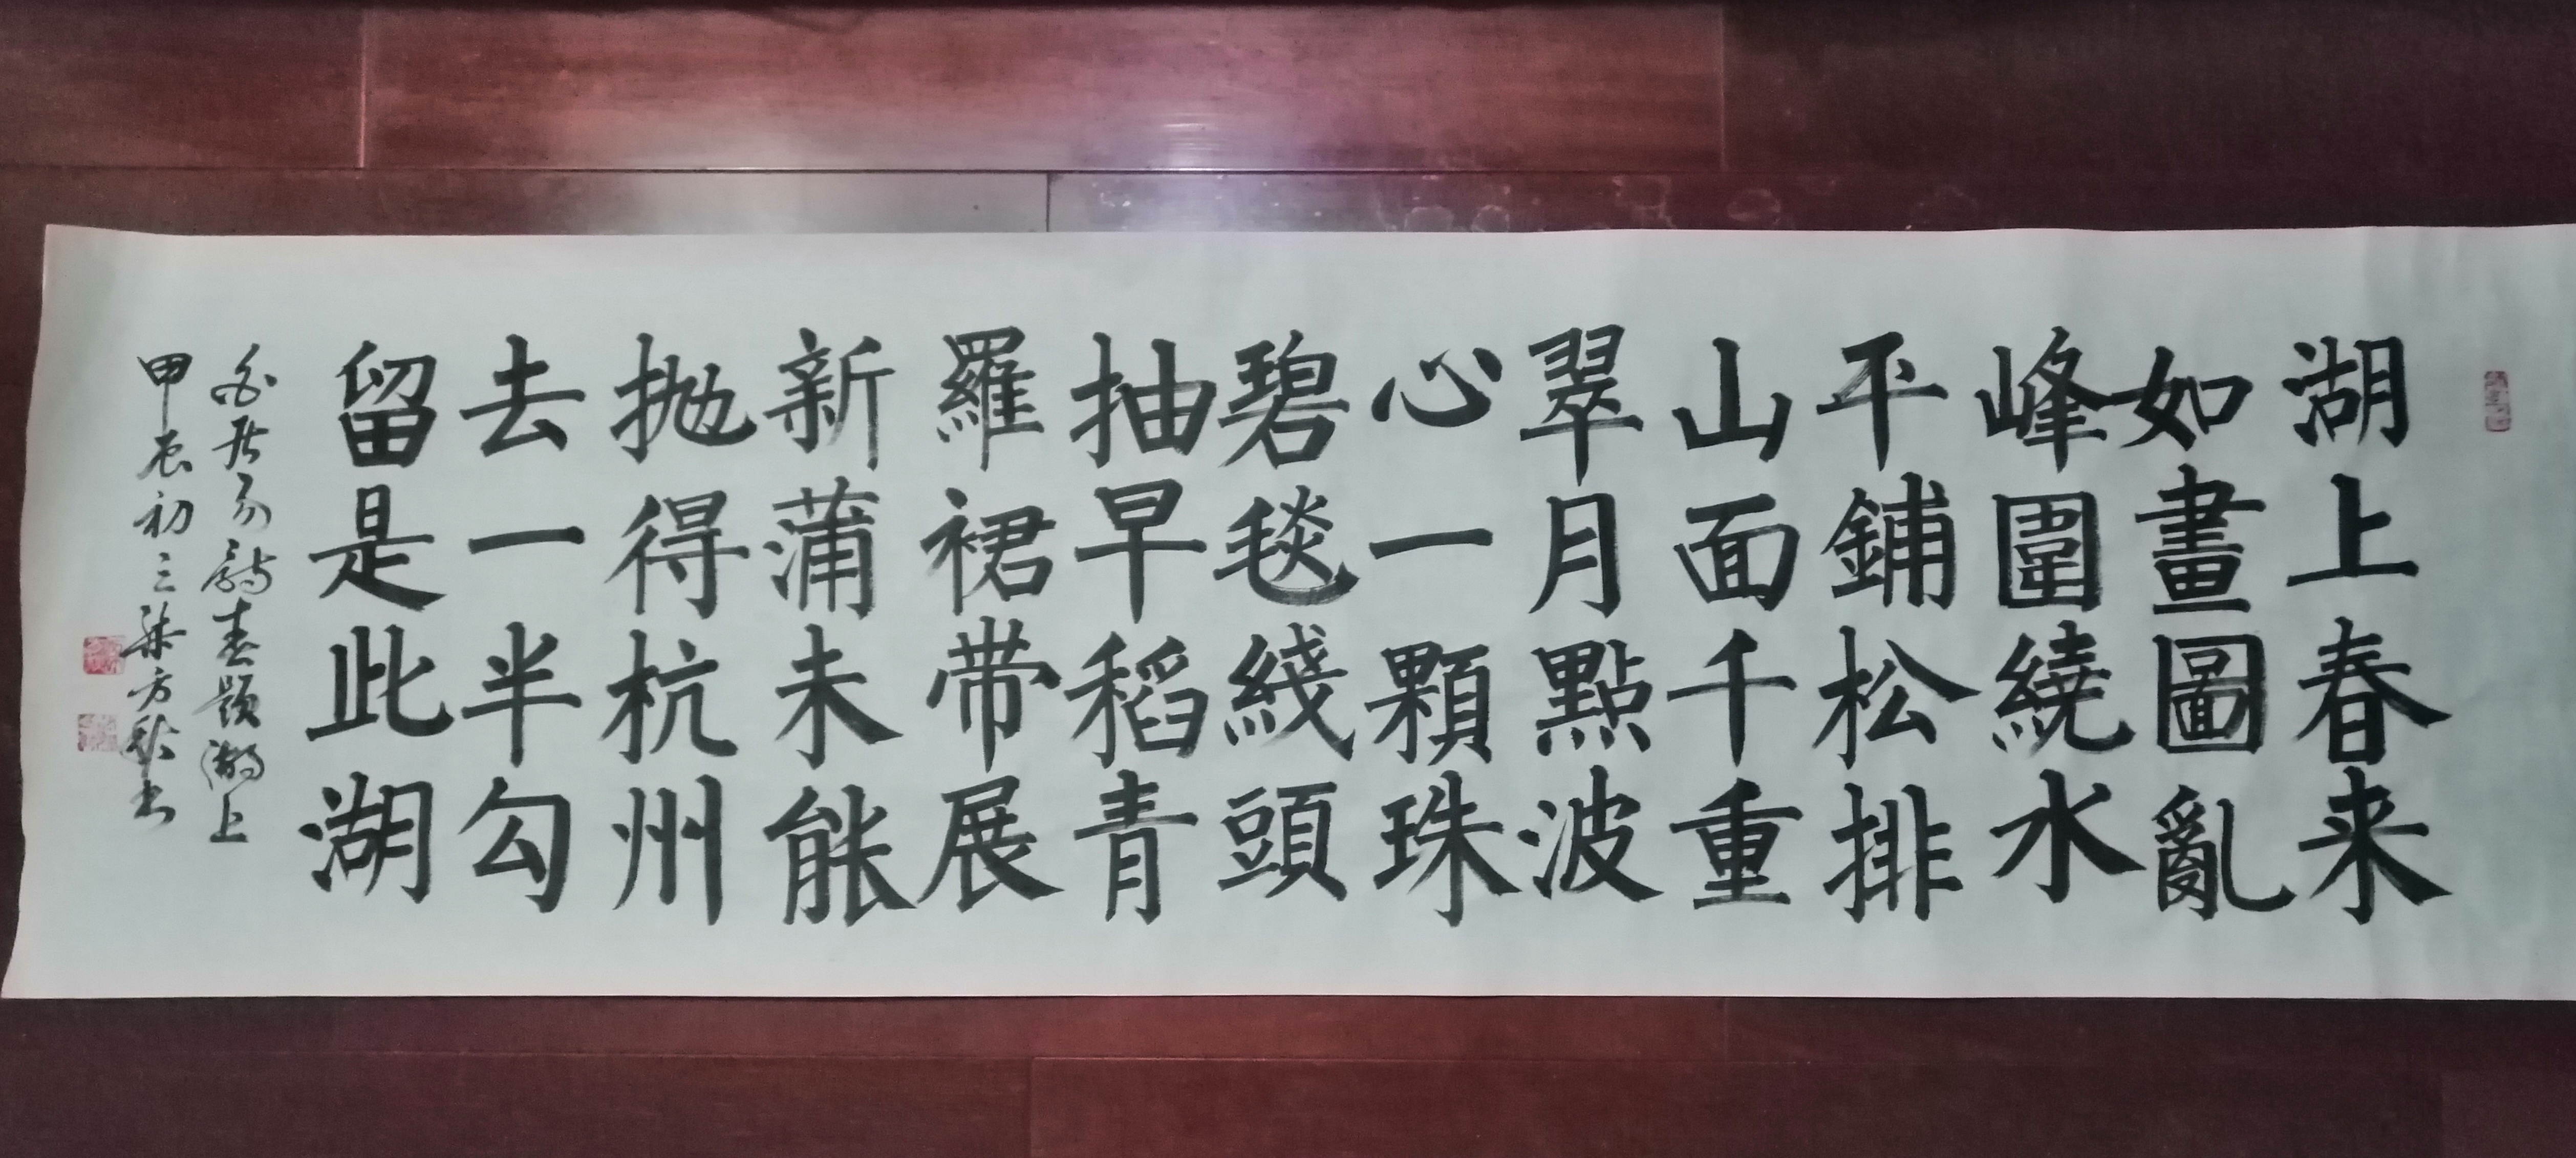 湖上春来
如畫圖亂
峰圍繞水
平鋪松排
山面千重
翠月點波
心一顆珠
碧毯綫頭
抽早稻青
羅裙带展
新蒲未能
抛得杭州
去一半勾
留是此湖
白居易詩春题湖上
甲辰初三梁方秋书